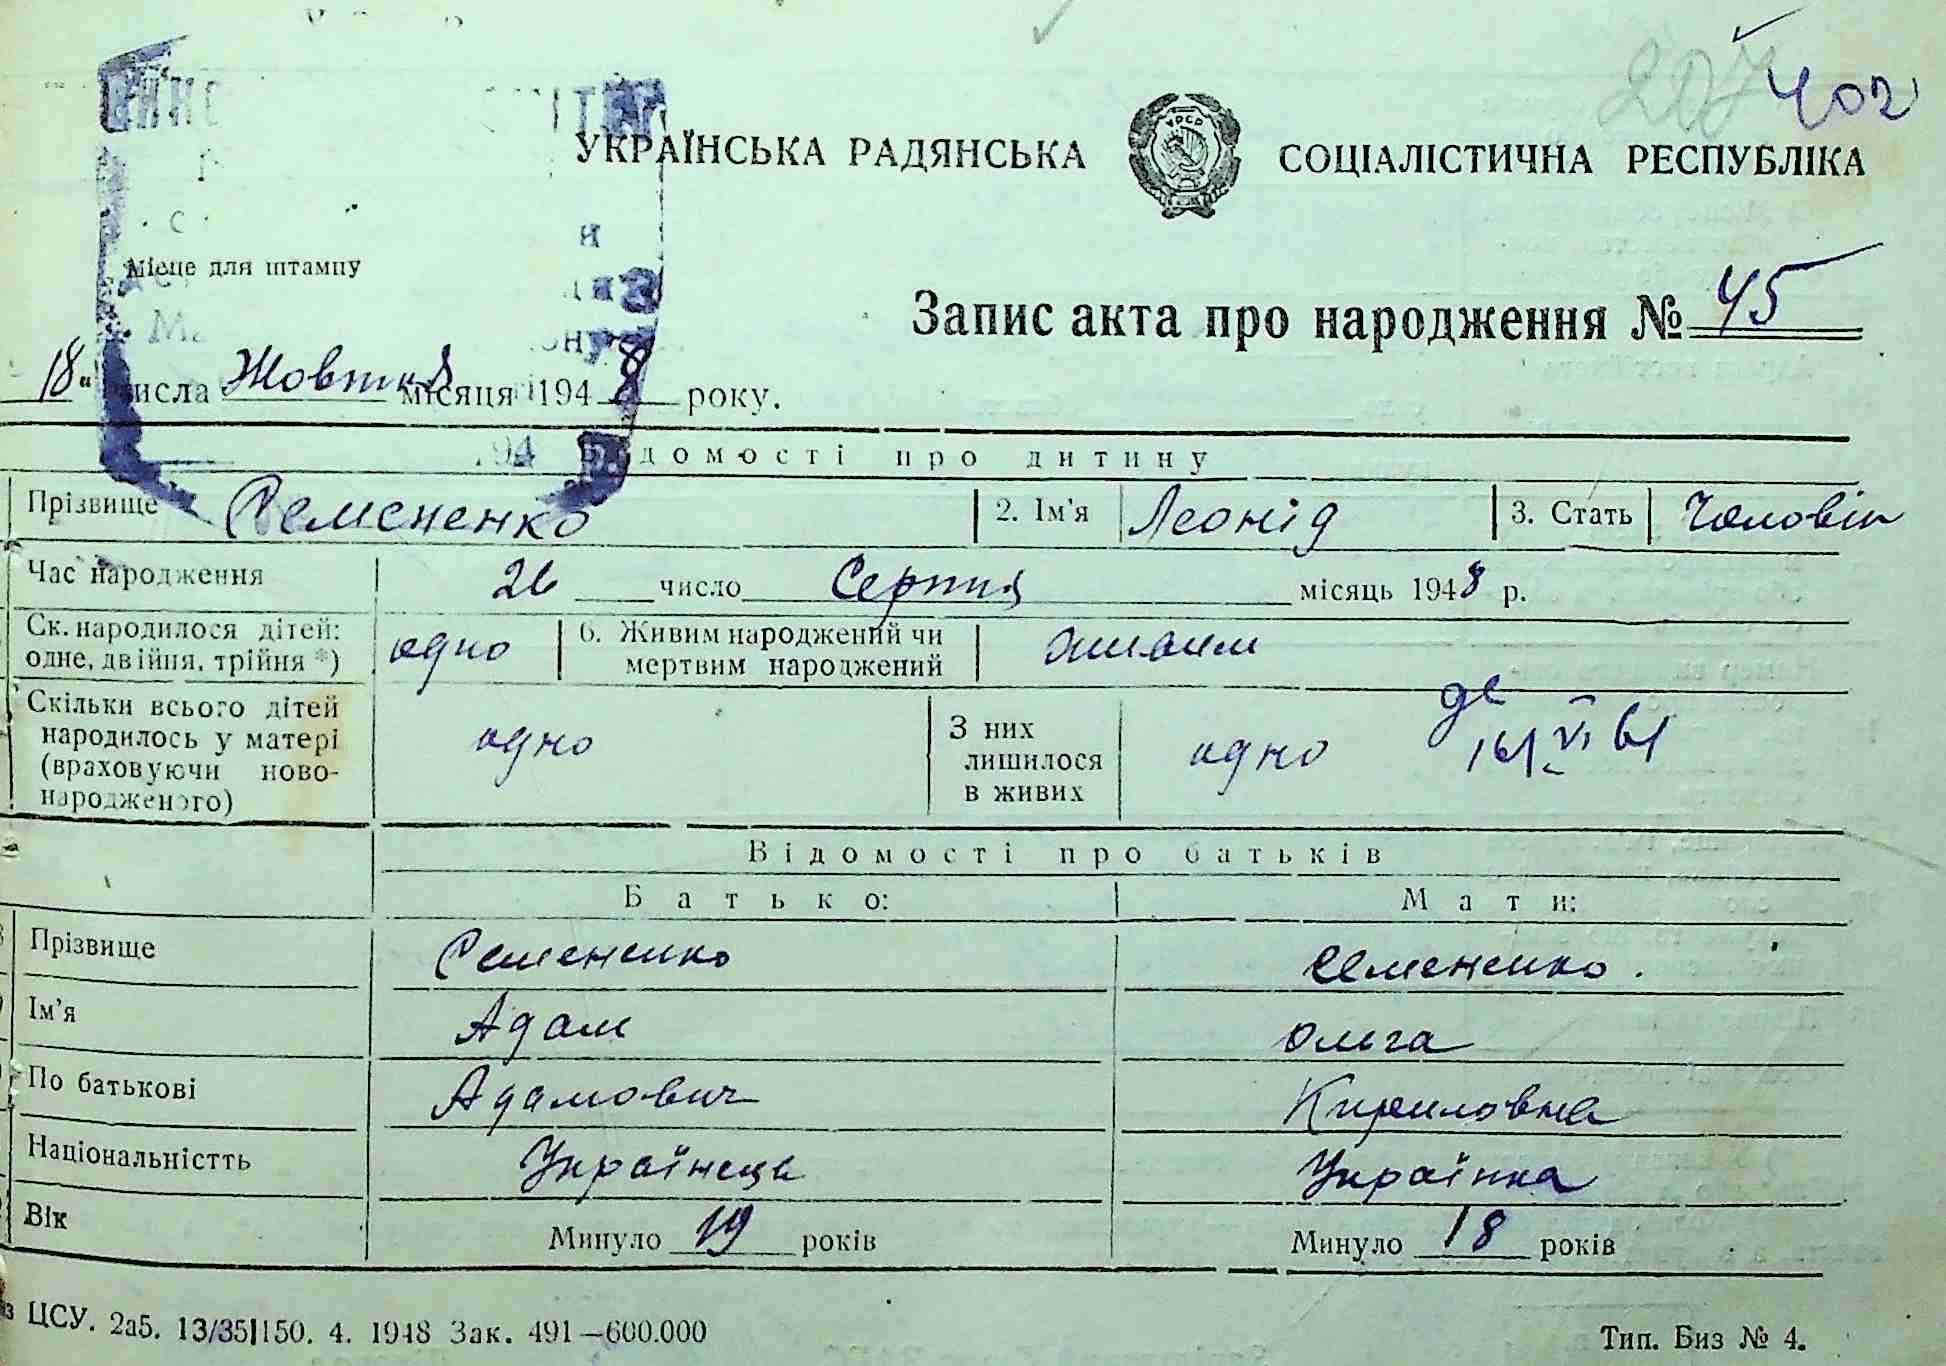 207 402
УКРАЇНСЬКА РАДЯНСЬКА СОЦІАЛІСТИЧНА РЕСПУБЛІКА
УРСР
Місце для штампу
Запис акта про народження № 45
18" числа Жовтня місяця 1948 року.
194
Відомості про дитину
Прізвище Семененко 2. Ім'я Леонід 3. Стать Чоловік
Час народження 26 число Серпня місяць 1948 р.
Ск. народилося дітей: одно 6. Живим народжений чи живим
одне, двійня, трійня *) мертвим народжений
Скільки всього дітей
народилось у матері одно З них одно
(враховуючи ново- лишилося
народженого) в живих
VI 61
Відомості про батьків
Батько: Мати:
Прізвище Семененко Семененко.
Ім'я Адам Ольга
По батькові Адамович Кириловна
Національністть Українець Українка
Вік Минуло 19 років Минуло 18 років
ЦСУ. 2а5. 13/35|150. 4. 1948 Зак. 491—600.000 Тип. Биз № 4.